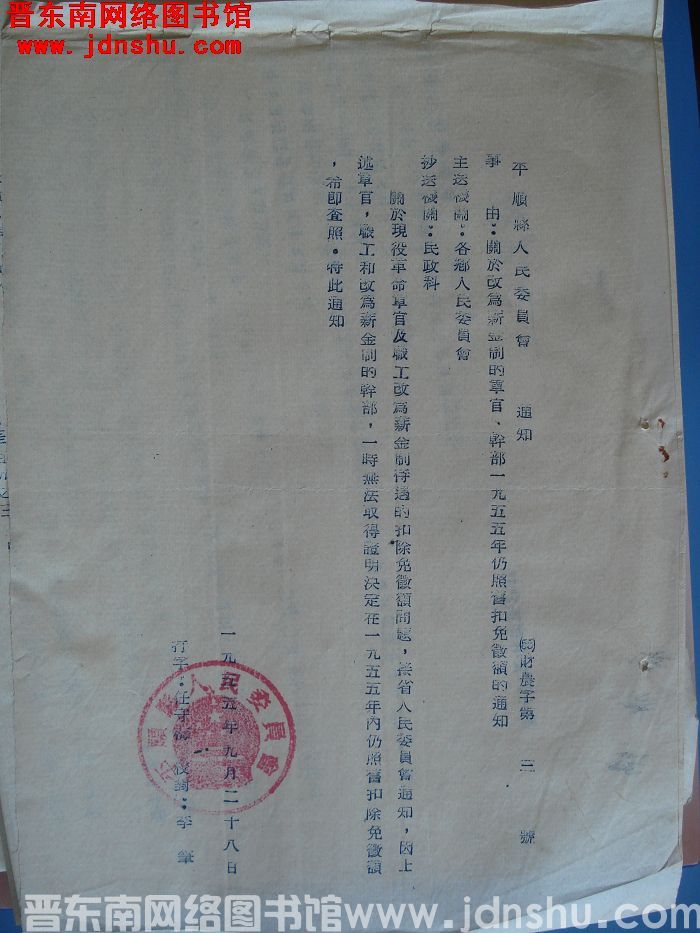 晋东南网络图书馆
www.jdnshu.com
平順縣人民委員會 通知
㊺財農字第 三 號
事 由：關於改爲薪金制的軍官、幹部一九五五年仍照舊扣免徵額的通知
主送機關：各鄉人民委員會
抄送機關：民政科
關於現役革命軍官及職工改爲薪金制待遇的扣除免徵額問題，接省人民委員會通知，因上
述軍官，職工和改爲薪金制的幹部，一時無法取得證明決定在一九五五年內仍照舊扣除免徵額
，希即查照。特此通知
一九五五年九月二十八日
打字：任 校對：李 筆
平順縣人民委員會
晋东南网络图书馆www.jdnshu.com